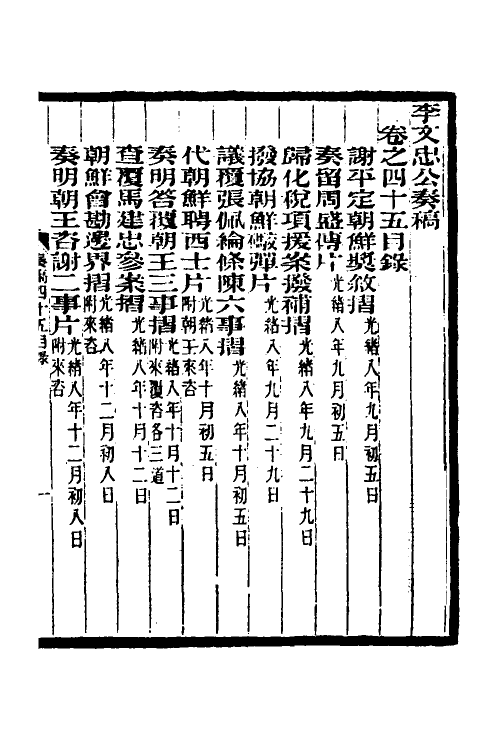 李文忠公奏稿
卷之四十五目錄
謝平定朝鮮獎敘摺光緒八年九月初五日
奏留周盛傳片光緒八年九月初五日
歸化倪項援案撥補摺光緒八年九月二十九日
撥協朝鮮礮彈片光緒八年九月二十九日
議覆張佩綸條陳六事摺光緒八年十月初五日
代朝鮮聘西士片光緒八年十月初五日附朝王來咨
奏明答覆朝王三事摺光緒八年十月十二日附來覆咨各三道
查覆馬建忠參案摺光緒八年十月十二日
朝鮮會勘邊界摺光緒八年十二月初八日附來咨
奏明朝王咨謝二事片光緒八年十二月初八日附來咨
奏稿四十五目錄
一